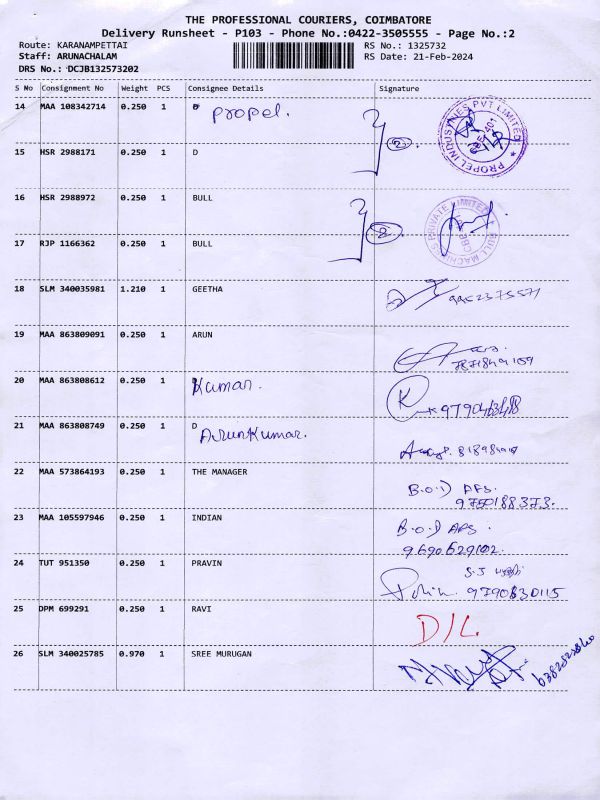 THE PROFESSIONAL COURIERS, COIMBATORE
Delivery Runsheet - P103 - Phone No.:0422-3505555 - Page No.:2
Route: KARANAMPETTAI RS No.: 1325732
Staff: ARUNACHALAM RS Date: 21-Feb-2024
DRS No.: DCJB132573202
S No Consignment No Weight PCS Consignee Details Signature
14 MAA 108342714 0.250 1 D propel.
PROPEL INDUSTRIES PVT LIMITED
2
15 HSR 2988171 0.250 1 D
16 HSR 2988972 0.250 1 BULL
BULL MACHINES PRIVATE LIMITED
2
17 RJP 1166362 0.250 1 BULL
18 SLM 340035981 1.210 1 GEETHA 9952375571
19 MAA 863809091 0.250 1 ARUN
20 MAA 863808612 0.250 1 Kumar. K
21 MAA 863808749 0.250 1 D
ArunKumar.
22 MAA 573864193 0.250 1 THE MANAGER
9750188373.
23 MAA 105597946 0.250 1 INDIAN
9690629102.
24 TUT 951350 0.250 1 PRAVIN
9790630115
25 DPM 699291 0.250 1 RAVI D/L
26 SLM 340025785 0.970 1 SREE MURUGAN